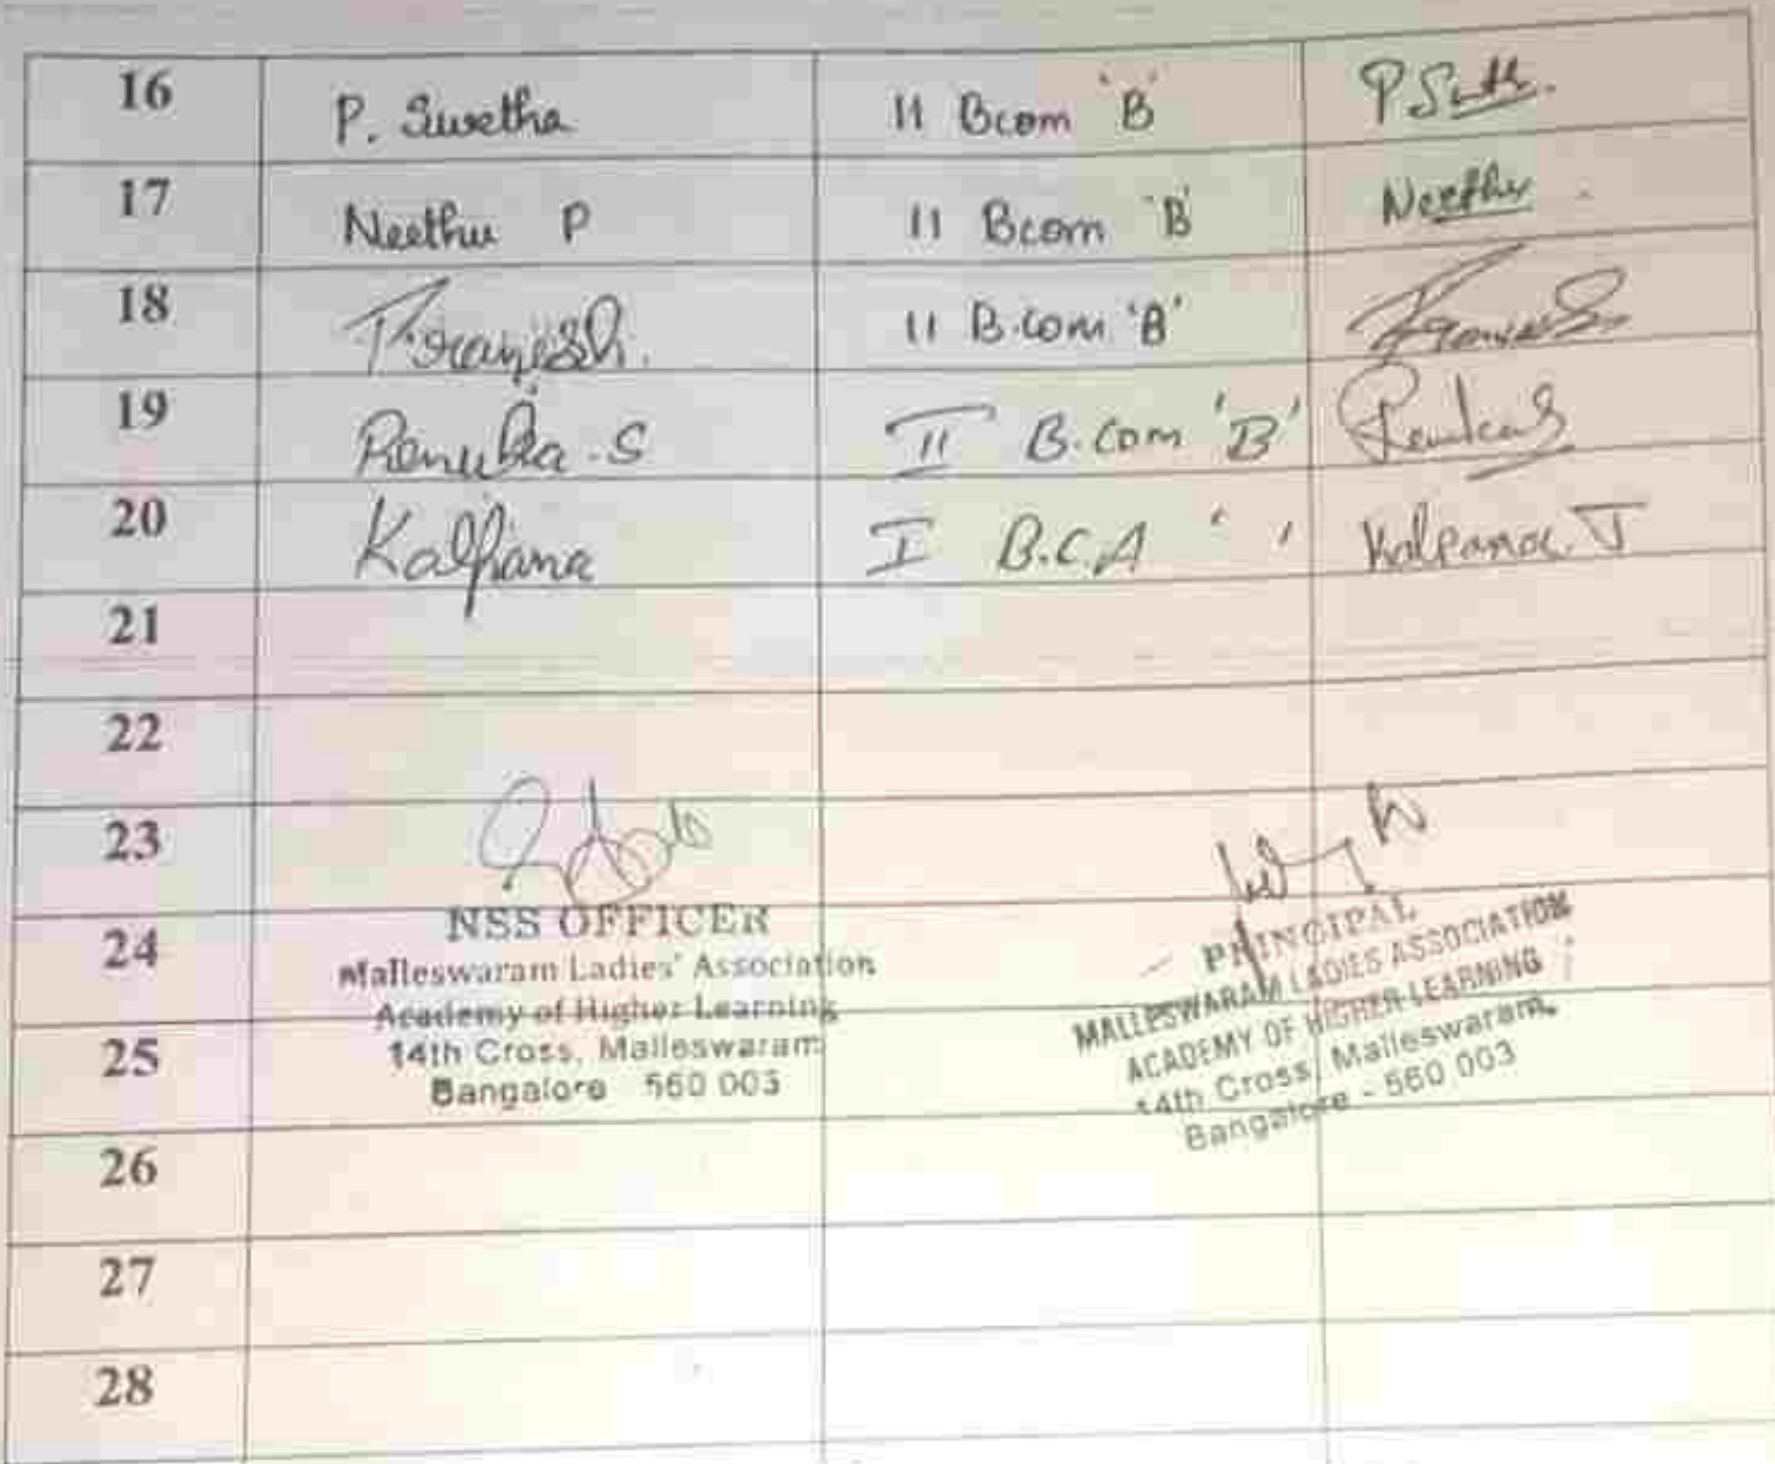 16 P. Swetha II Bcom 'B'
17 Neethu P II Bcom 'B' Neethu
18 II B.com 'B'
19 Renuka.S II B.com 'B' Renuka S
20 Kalpana I B.C.A ' ' Kalpana. J
21
22
23
24
25
26
27
28
NSS OFFICER
Malleswaram Ladies' Association
Academy of Higher Learning
14th Cross, Malleswaram
Bangalore 560 003
PRINCIPAL
MALLESWARAM LADIES ASSOCIATION
ACADEMY OF HIGHER LEARNING
14th Cross, Malleswaram,
Bangalore - 560 003